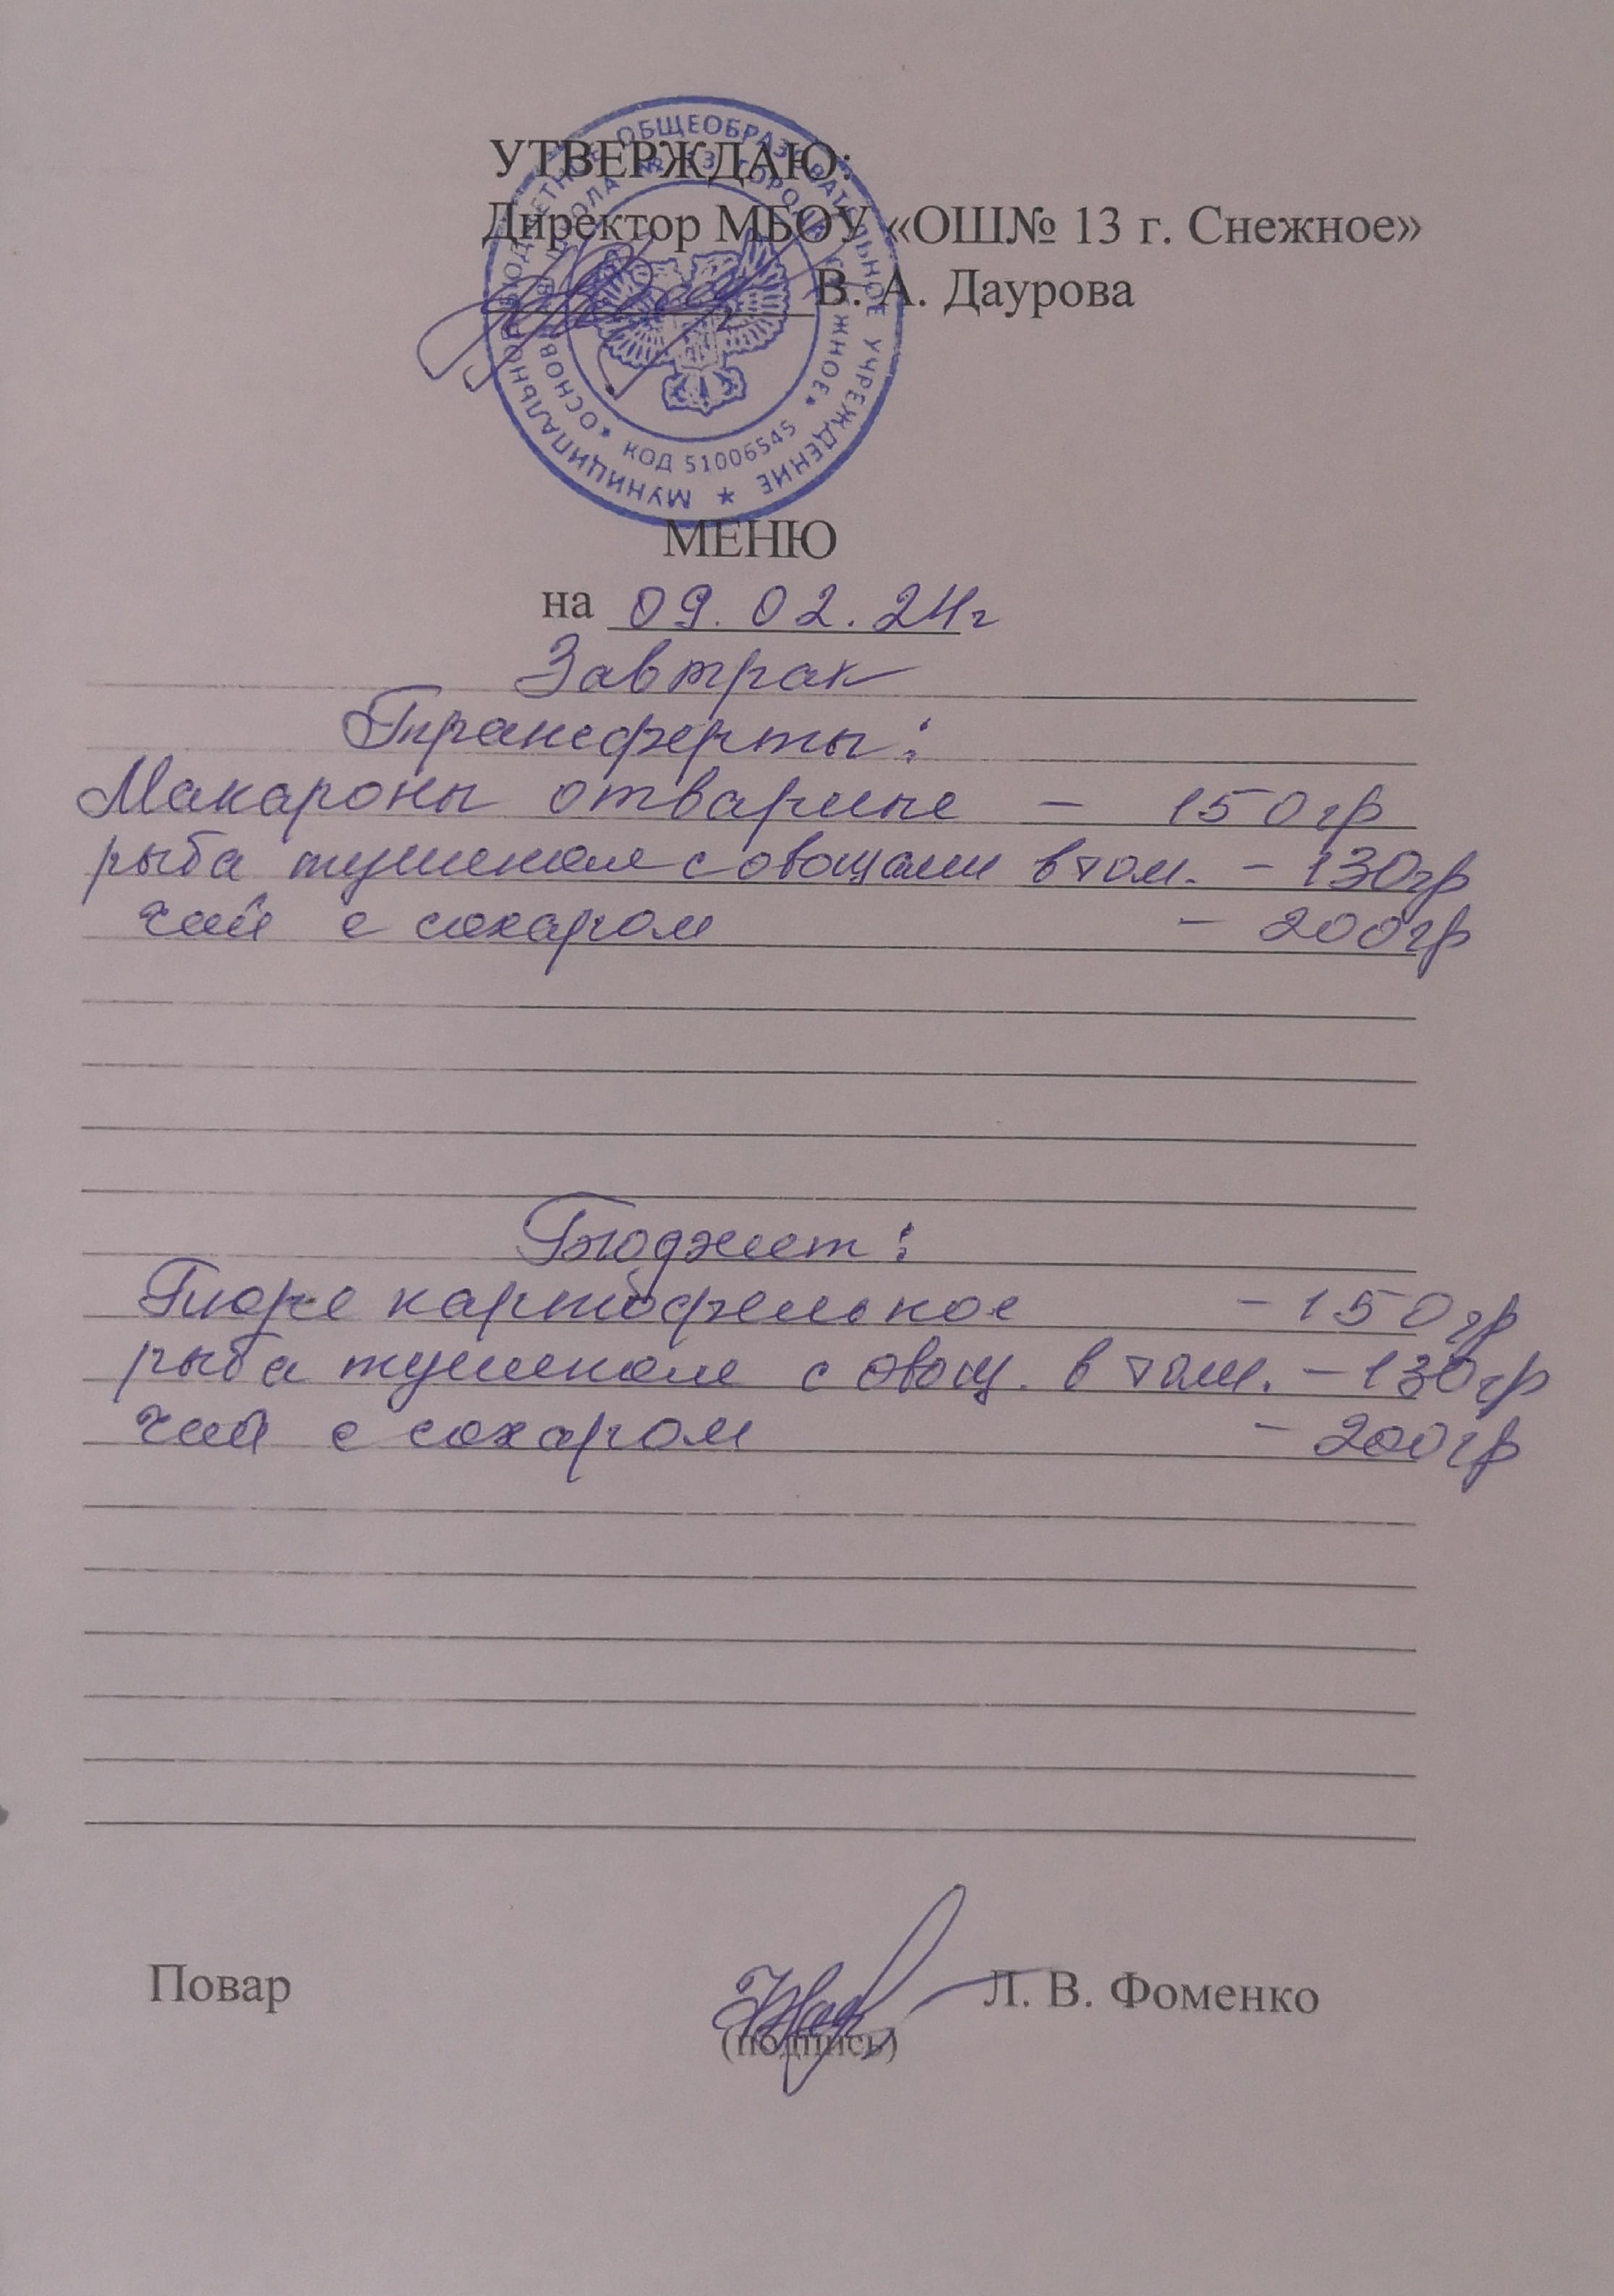 УТВЕРЖДАЮ:
Директор МБОУ «ОШ№ 13 г. Снежное»
В. А. Даурова
МУНИЦИПАЛЬНОЕ БЮДЖЕТНОЕ ОБЩЕОБРАЗОВАТЕЛЬНОЕ УЧРЕЖДЕНИЕ
КОД 51006545
МЕНЮ
на 09.02.24г
Завтрак
Трансферты:
Макароны отварные – 150гр
рыба тушеная с овощами в том. – 130гр
чай с сахаром – 200гр
Бюджет:
Пюре картофельное – 150гр
рыба тушеная с овощ. в том. – 130гр
чай с сахаром – 200гр
Повар Л. В. Фоменко
(подпись)